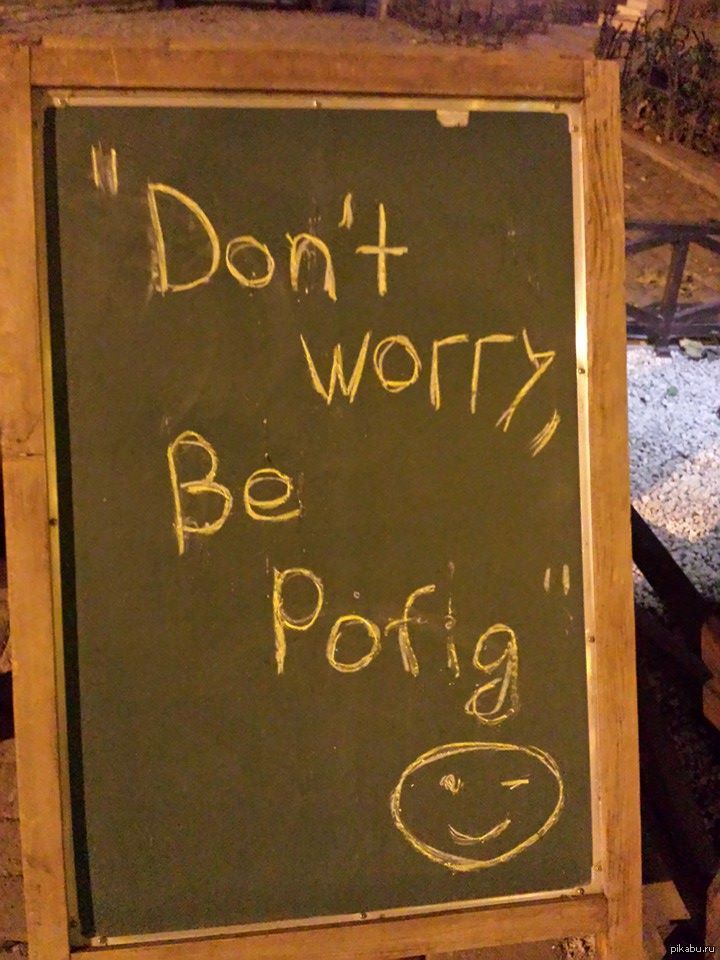 "Don't
worry,
Be
Pofig"
pikabu.ru